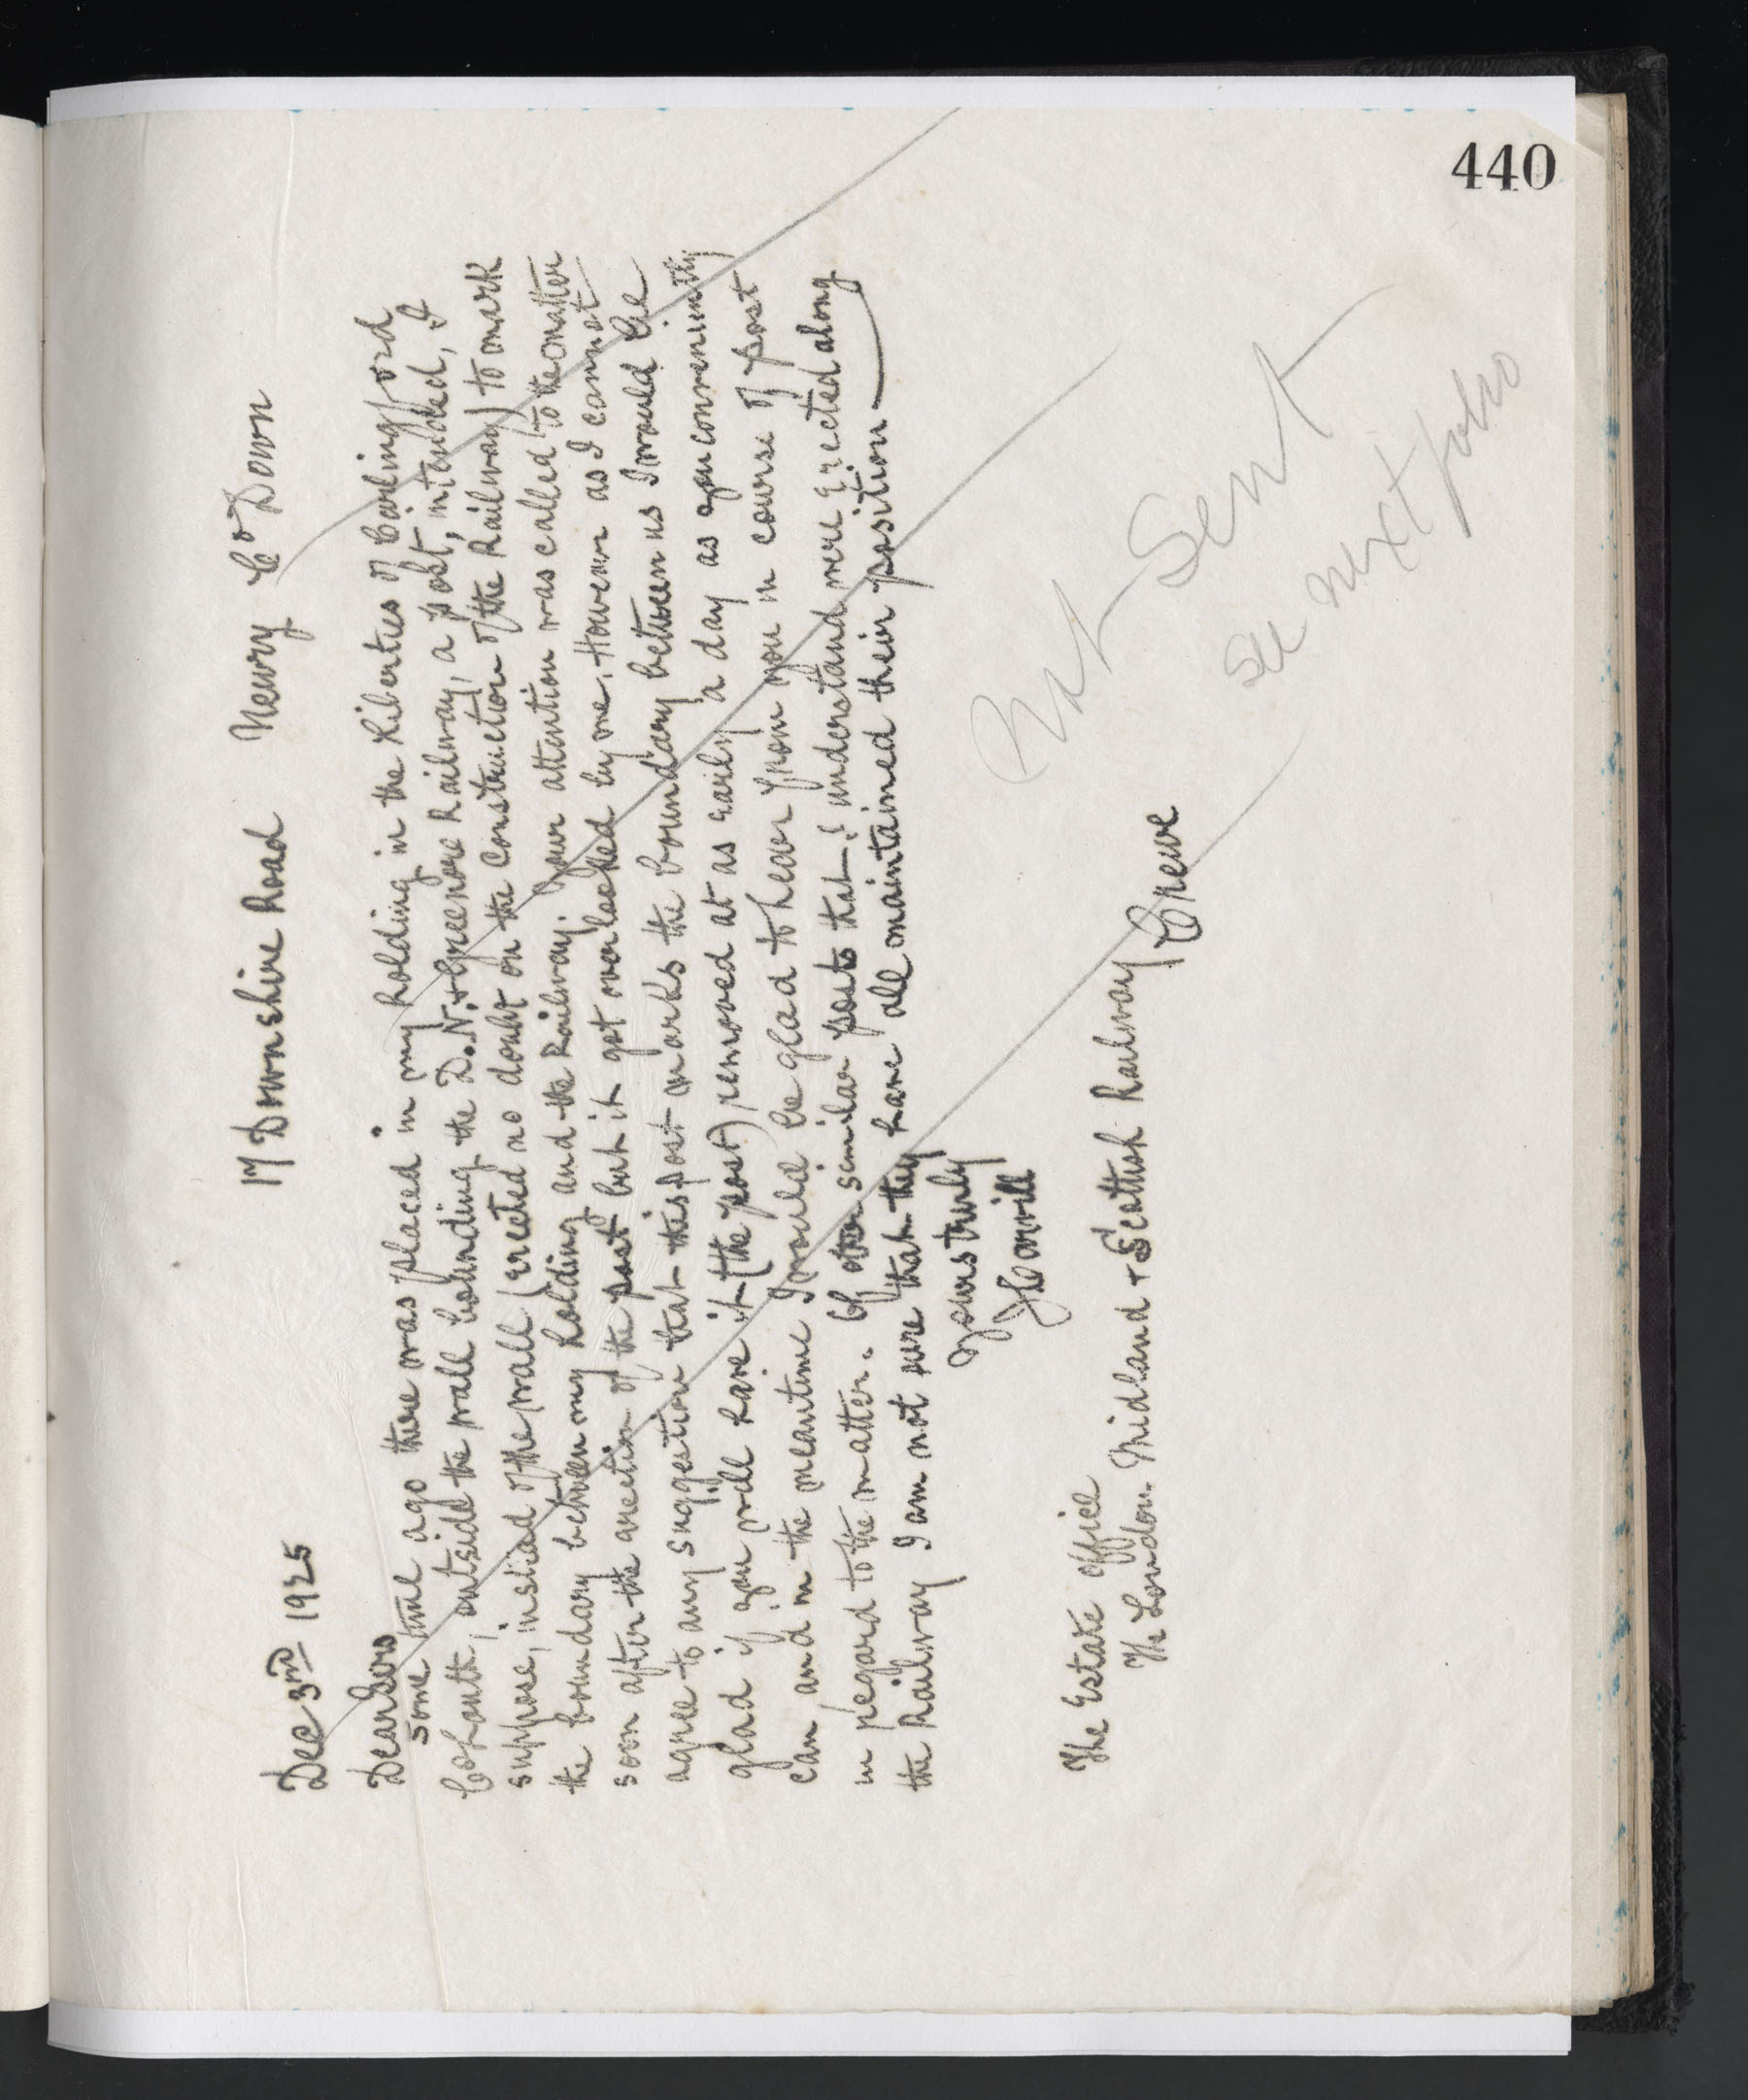 440
17 Downshire Road Newry Co Down
Dec 3rd 1925
Dear Sirs
Some time ago there was placed in my holding in the Liberties of Carlingford
Co Louth, outside the wall bounding the D.N. & Greenore Railway, a post, intended, I
suppose, instead of the wall (erected no doubt on the Construction of the Railway) to mark
the boundary between my holding and the Railway. Your attention was called to the matter
soon after the erection of the post but it got overlooked by me. However as I cannot
agree to any suggestion that this post marks the boundary between us I would be
glad if you will have it (the post) removed at as early a day as you conveniently
can and in the meantime I would be glad to hear from you in course of post
in regard to the matter. Of other similar posts that I understand were erected along
the Railway I am not sure that they have all maintained their position
Yours truly
The Estate Office
The London Midland & Scottish Railway Crewe
Not Sent
see next folio